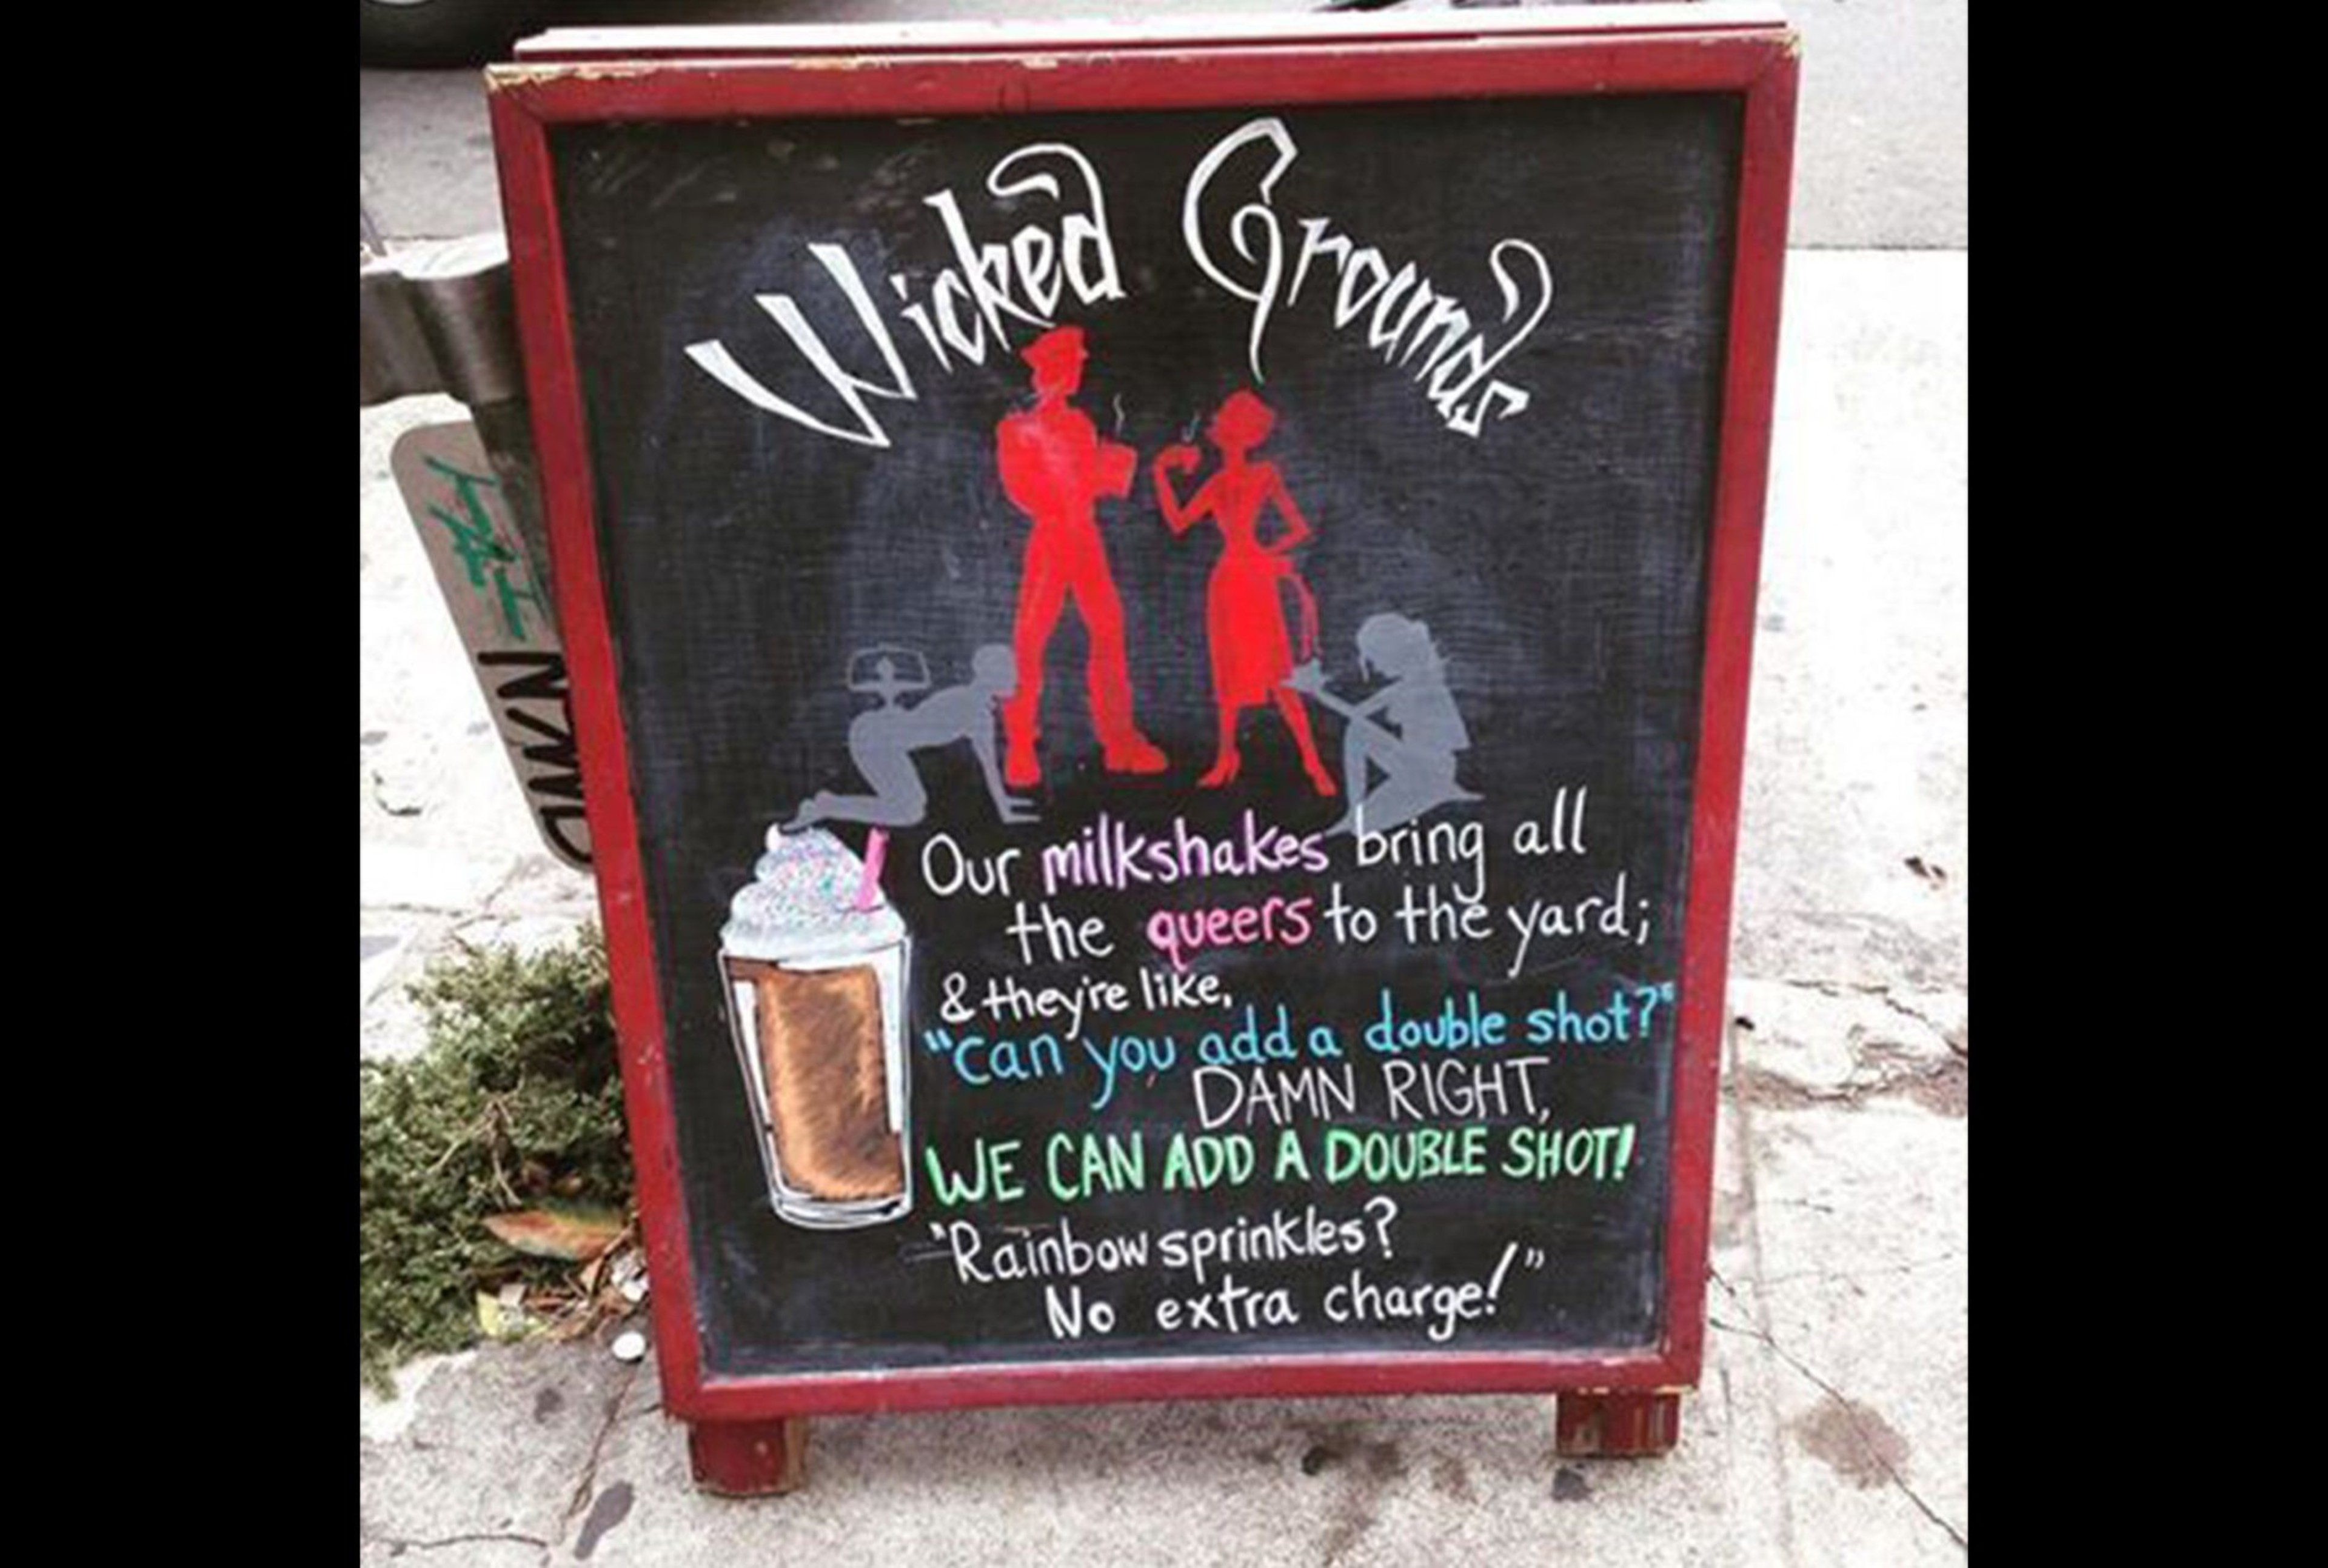 Wicked Grounds
Our milkshakes bring all
the queers to the yard;
& they're like,
"can you add a double shot?"
DAMN RIGHT,
WE CAN ADD A DOUBLE SHOT!
"Rainbow sprinkles?
No extra charge!"